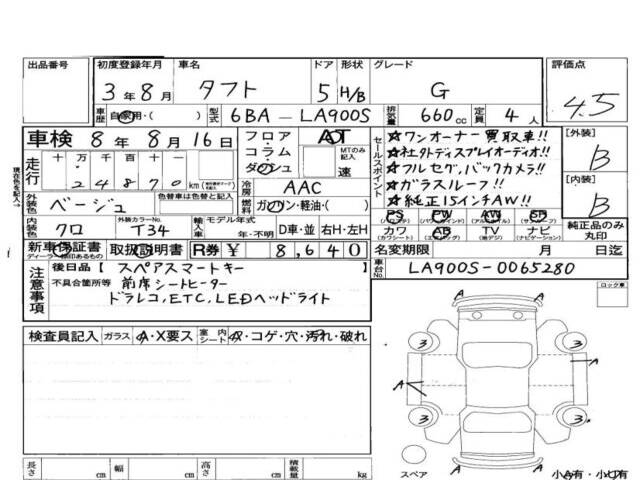 出品番号 初度登録年月 車名 ドア 形状 グレード 評価点
3年8月 タフト 5 H/B G 4.5
車歴 自家用・( ) 型式 6BA-LA900S 排気量 660cc 定員 4人
車検 8年8月16日 フロア コラム ダッシュ AOT MTのみ記入 速
セールスポイント
☆ワンオーナー買取車!!
☆社外ディスプレイオーディオ!!
☆フルセグ、バックカメラ!!
☆ガラスルーフ!!
☆純正15インチAW!!
[外装] B
[内装] B
純正品のみ丸印
走行 十万 千 百 十 24870km
冷房 AAC
外装色 ベージュ 色替車は色替と記入 燃料 ガソリン・軽油・( )
内装色 クロ 外装カラーNo. T34 輸入車 モデル年式 年・不明 D車・並 右H・左H
PS PW AW SR
カワ AB TV ナビ
(カワシート) (エアバッグ) (地デジ) (ナビゲーション)
新車保証書 取扱説明書 R券 ¥ 8,640
名変期限 月 日迄
車台No. LA900S-0065280
注意事項
後日品[ スペアスマートキー ]
不具合箇所等 前席シートヒーター
ドラレコ,ETC,LEDヘッドライト
ロック車
検査員記入 ガラス A・X要ス 室内シート A・コゲ・穴・汚れ・破れ
A
3 3
A A
3 3
A
スペア
小A有・小U有
長さ cm 幅 cm 高さ cm 積載量 kg